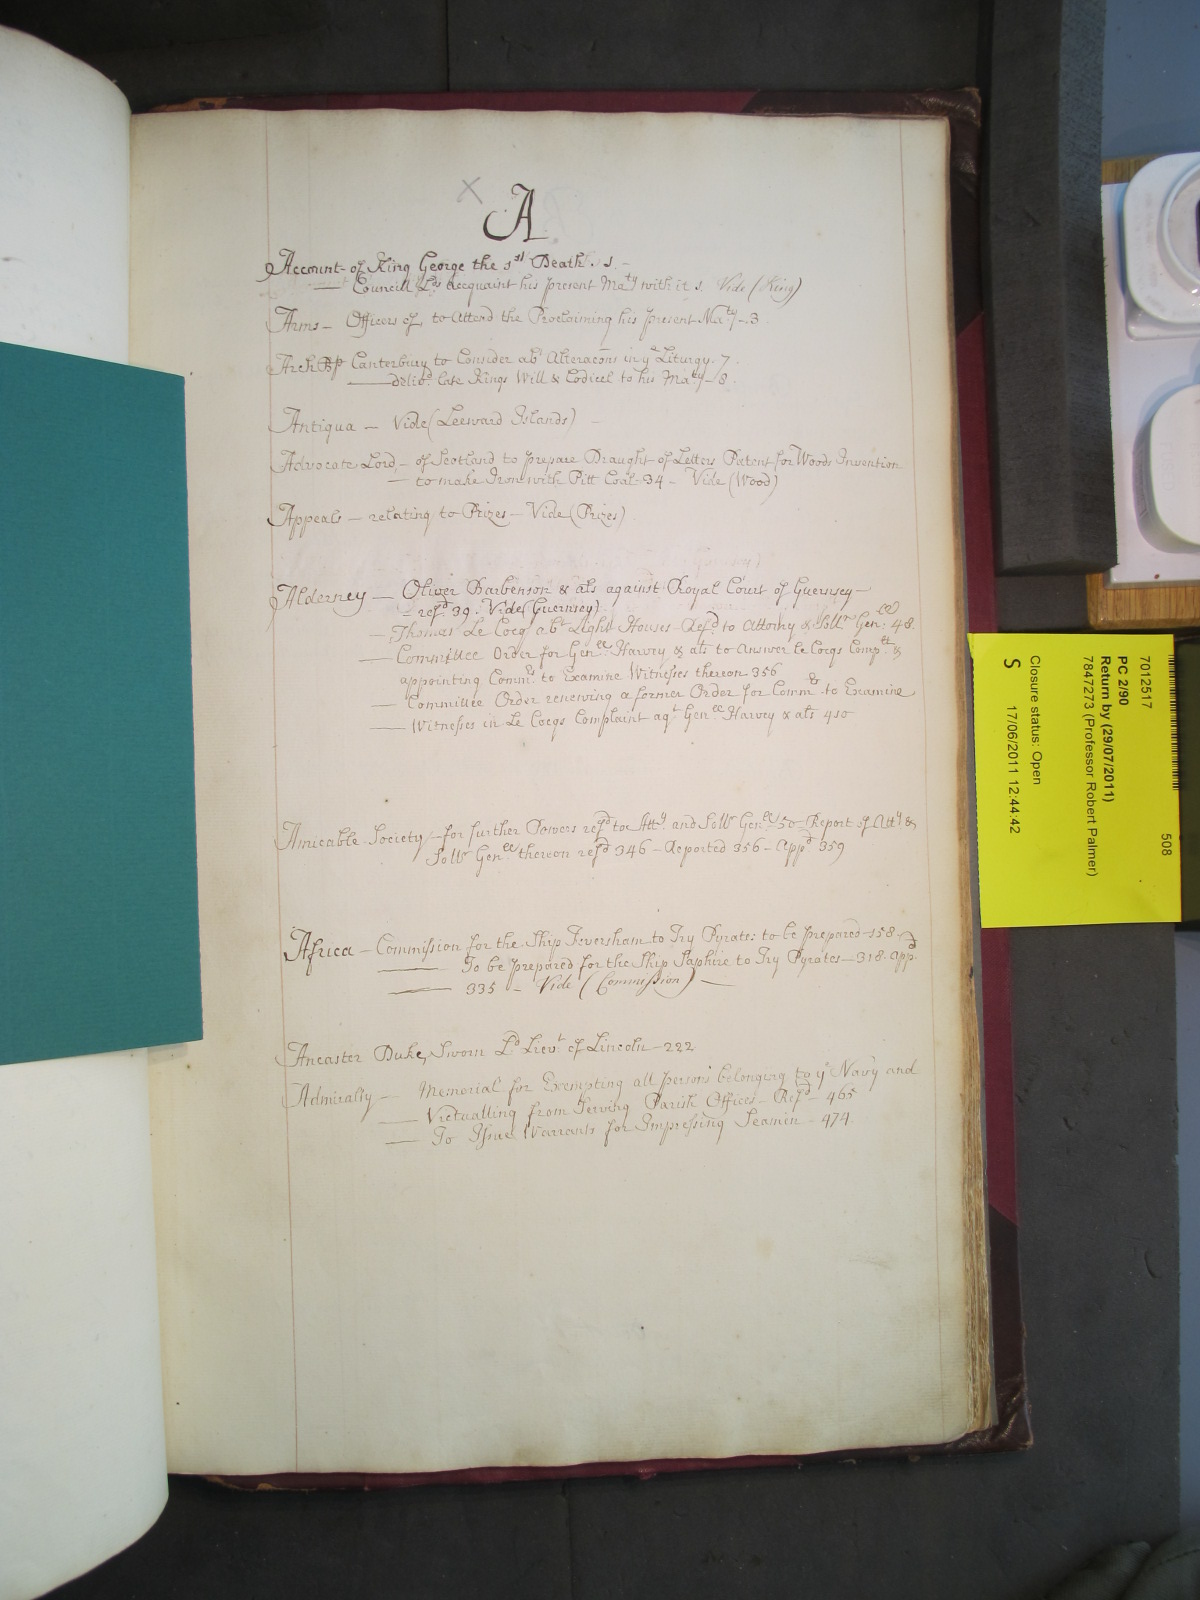 A
Account of King George the 1st Death. 1.
Councill Lds Acequaint his present Maty with it 1. Vide (King)
Arms – Officers of, to Attend the Proclaiming his present Maty – 3
ArchBp Canterbury to Consider abt Alteracons in ye Liturgy. 7.
delivd late Kings Will & Codicel to his Maty – 8.
Antiqua – Vide (Leeward Islands)
Advocate Lord – of Scotland to prepare Draught of Letters Patent for Woods Invention
– to make Iron with Pitt Coal 34 – Vide (Wood)
Appeals – relating to Prizes – Vide (Prizes)
Alderney – Oliver Barbenson & als against Royal Court of Guernsey –
– refd 39. Vide (Guernsey)
– Thomas Le Cocq abt Light Houses – Refd to Attorny & Sollr Genll 48.
– Committee Order for Genll Harvey & als to Answer le Cocqs Complt &
appointing Commrs to Examine Witnesses thereon 356
– Committee Order renewing a former Order for Comm to Examine
– Witnesses in Le Cocqs Complaint agt Genll Harvey & als 410
Amicable Society – for further Powers refd to Atty and Sollr Genll 50 – Report of Atty &
Sollr Genll thereon refd 346 – Reported 356 – appd 359
Africa – Commission for the Ship Feversham to Try Pyrates to be prepared – 158 –
To be prepared for the Ship Saphire to Try Pyrates – 318. appd
335 – Vide (Commission) –
Ancaster Duke, Sworn Ld Lievt of Lincoln – 222
Admiralty – Memorial for Exempting all persons belonging to ye Navy and
– Victualling from Serving Parish Offices – Refd – 465
– To Issue Warrants for Impressing Seamen – 474.
508
7012517
PC 2/90
Return by (29/07/2011)
7847273 (Professor Robert Palmer)
Closure status: Open
S 17/06/2011 12:44:42